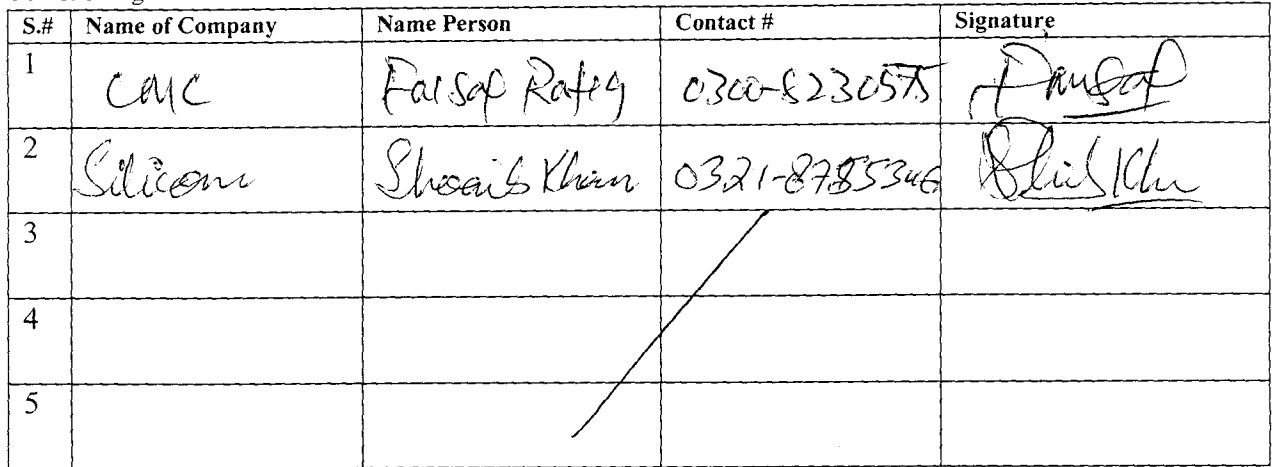 S.# Name of Company Name Person Contact # Signature
1 CMC Faisal Rafiq 0300-8230575
2 Silicom Shoaib Khan 0321-8785346
3
4
5